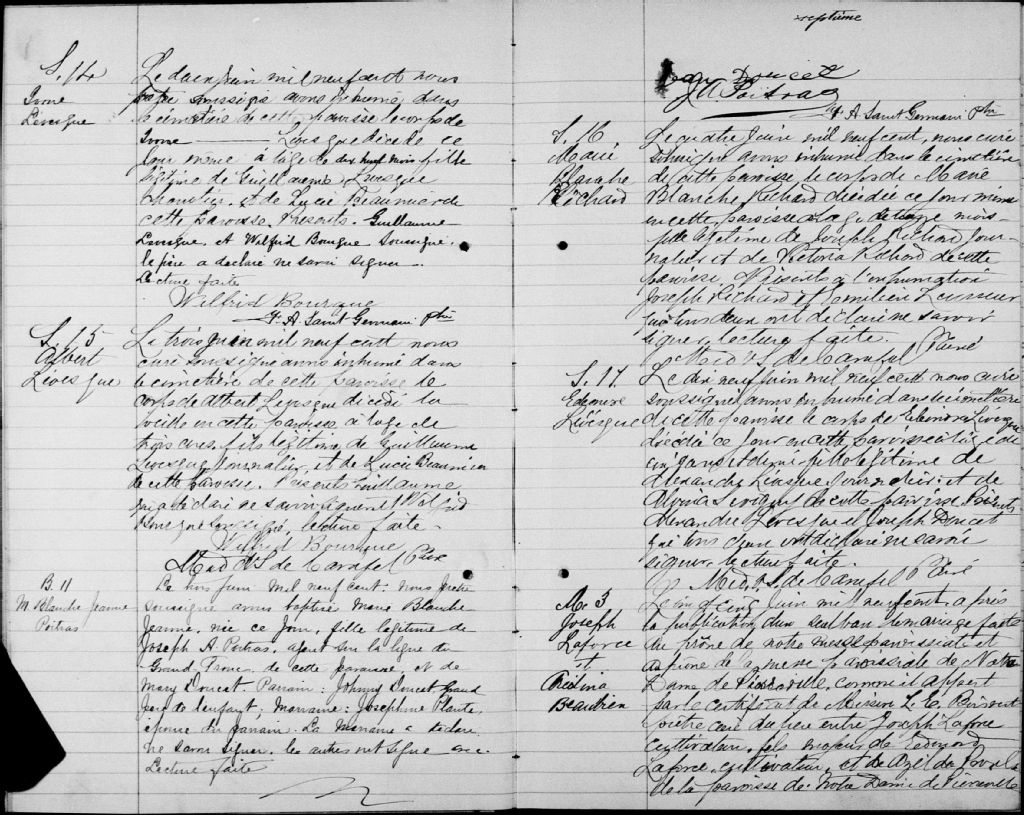 S. 14
Ivone
Levesque
Le deux juin mil neuf cent nous
prêtre soussigné avons inhumé dans
le cimetière de cette paroisse le corps de
Ivone Levesque décédé ce
jour même à l'âge de dix neuf mois fille
légitime de Guillaume Levesque
et de Lucie Beaumier de
cette paroisse. Présents. Guillaume
Levesque, et Wilfrid Bourque soussigné.
le père a déclaré ne savoir signer.
Lecture faite
Wilfrid Bourque
F. A. Saint Germain ptre
S. 15
Albert
Lévesque
Le trois juin mil neuf cent nous
curé soussigné avons inhumé dans
le cimetière de cette paroisse le
corps de Albert Levesque décédé la
veille en cette paroisse à l'age de
trois ans, fils légitime de Guillaume
Levesque journalier, et de Lucie Beaumier
de cette paroisse. Présents Guillaume
qui a déclaré ne savoir signer et Wilfrid
Bourque soussigné, lecture faite.
Wilfrid Bourque
de Carufel Ptre
B. 11
M. Blanche Jeanne
Poitras
Le trois Juin mil neuf cent. nous prêtre
soussigné avons baptisé Marie Blanche
Jeanne, née ce jour, fille légitime de
Joseph A. Poitras, agent sur la ligne du
Grand Tronc, de cette paroisse et de
Mary Doucet. Parrain: Johnny Doucet, Grand
père de l'enfant; marraine: Josephine Plante,
épouse du parrain. La marraine a déclaré
ne savoir signer. les autres ont signé
Lecture faite
septième
Jean Doucet
J. A. Poitras
F. A. Saint Germain ptre
S. 16
Marie
Blanche
Richard
Le quatre Juin mil neuf cent, nous curé
soussigné avons inhumé dans le cimetière
de cette paroisse le corps de Marie
Blanche Richard décédée ce jour même
en cette paroisse à l'age de mois
fille légitime de Joseph Richard jour-
nalier et de Victoria Richard de cette
paroisse. Présents à l'inhumation
Joseph Richard et
qui tous deux ont déclaré ne savoir
signer, lecture faite.
de Carufel Curé
S. 17.
Lévesque
Le dix neuf juin mil neuf cent nous curé
soussigné avons inhumé dans le cimetière
de cette paroisse le corps de Levesque
décédée ce jour en cette paroisse à l'age de
cinq ans et demi fille légitime de
Alexandre Levesque Journalier et de
de cette paroisse. Présents
Alexandre Levesque et Joseph Doucet
qui tous deux ont déclaré ne savoir
signer, lecture faite.
de Carufel Curé
M. 3
Joseph
Laforce
et
Beaudrien
Le vingt cinq Juin mil neuf cent, après
la publication d'un seul ban de mariage faite
au prône de notre messe paroissiale et
au prône de la messe paroissiale de Notre
Dame de Pierreville, comme il appert
par le certificat de Messire
prêtre curé du lieu entre Joseph Laforce
cultivateur, fils majeur de
Laforce, cultivateur, et de
de la paroisse de Notre Dame de Pierreville